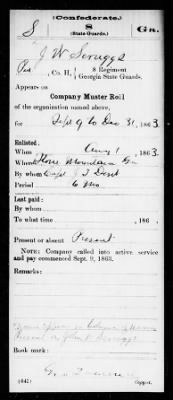 (Confederate.)
S 8 Ga.
(State Guards.)
J W Scruggs
Co. H, 8 Regiment
Georgia State Guards.
Appears on
Company Muster Roll
of the organization named above,
for Sept 9 to Dec 31, 1863.
Enlisted:
When Aug 1, 1863
Where Stone Mountain Ga
By whom Capt J T
Period 6 mo
Last paid:
By whom
To what time , 186 .
Present or absent Present
NOTE: Company called into active service
and pay commenced Sept. 9, 1863.
Remarks:
Book mark:
(642) Copyist.